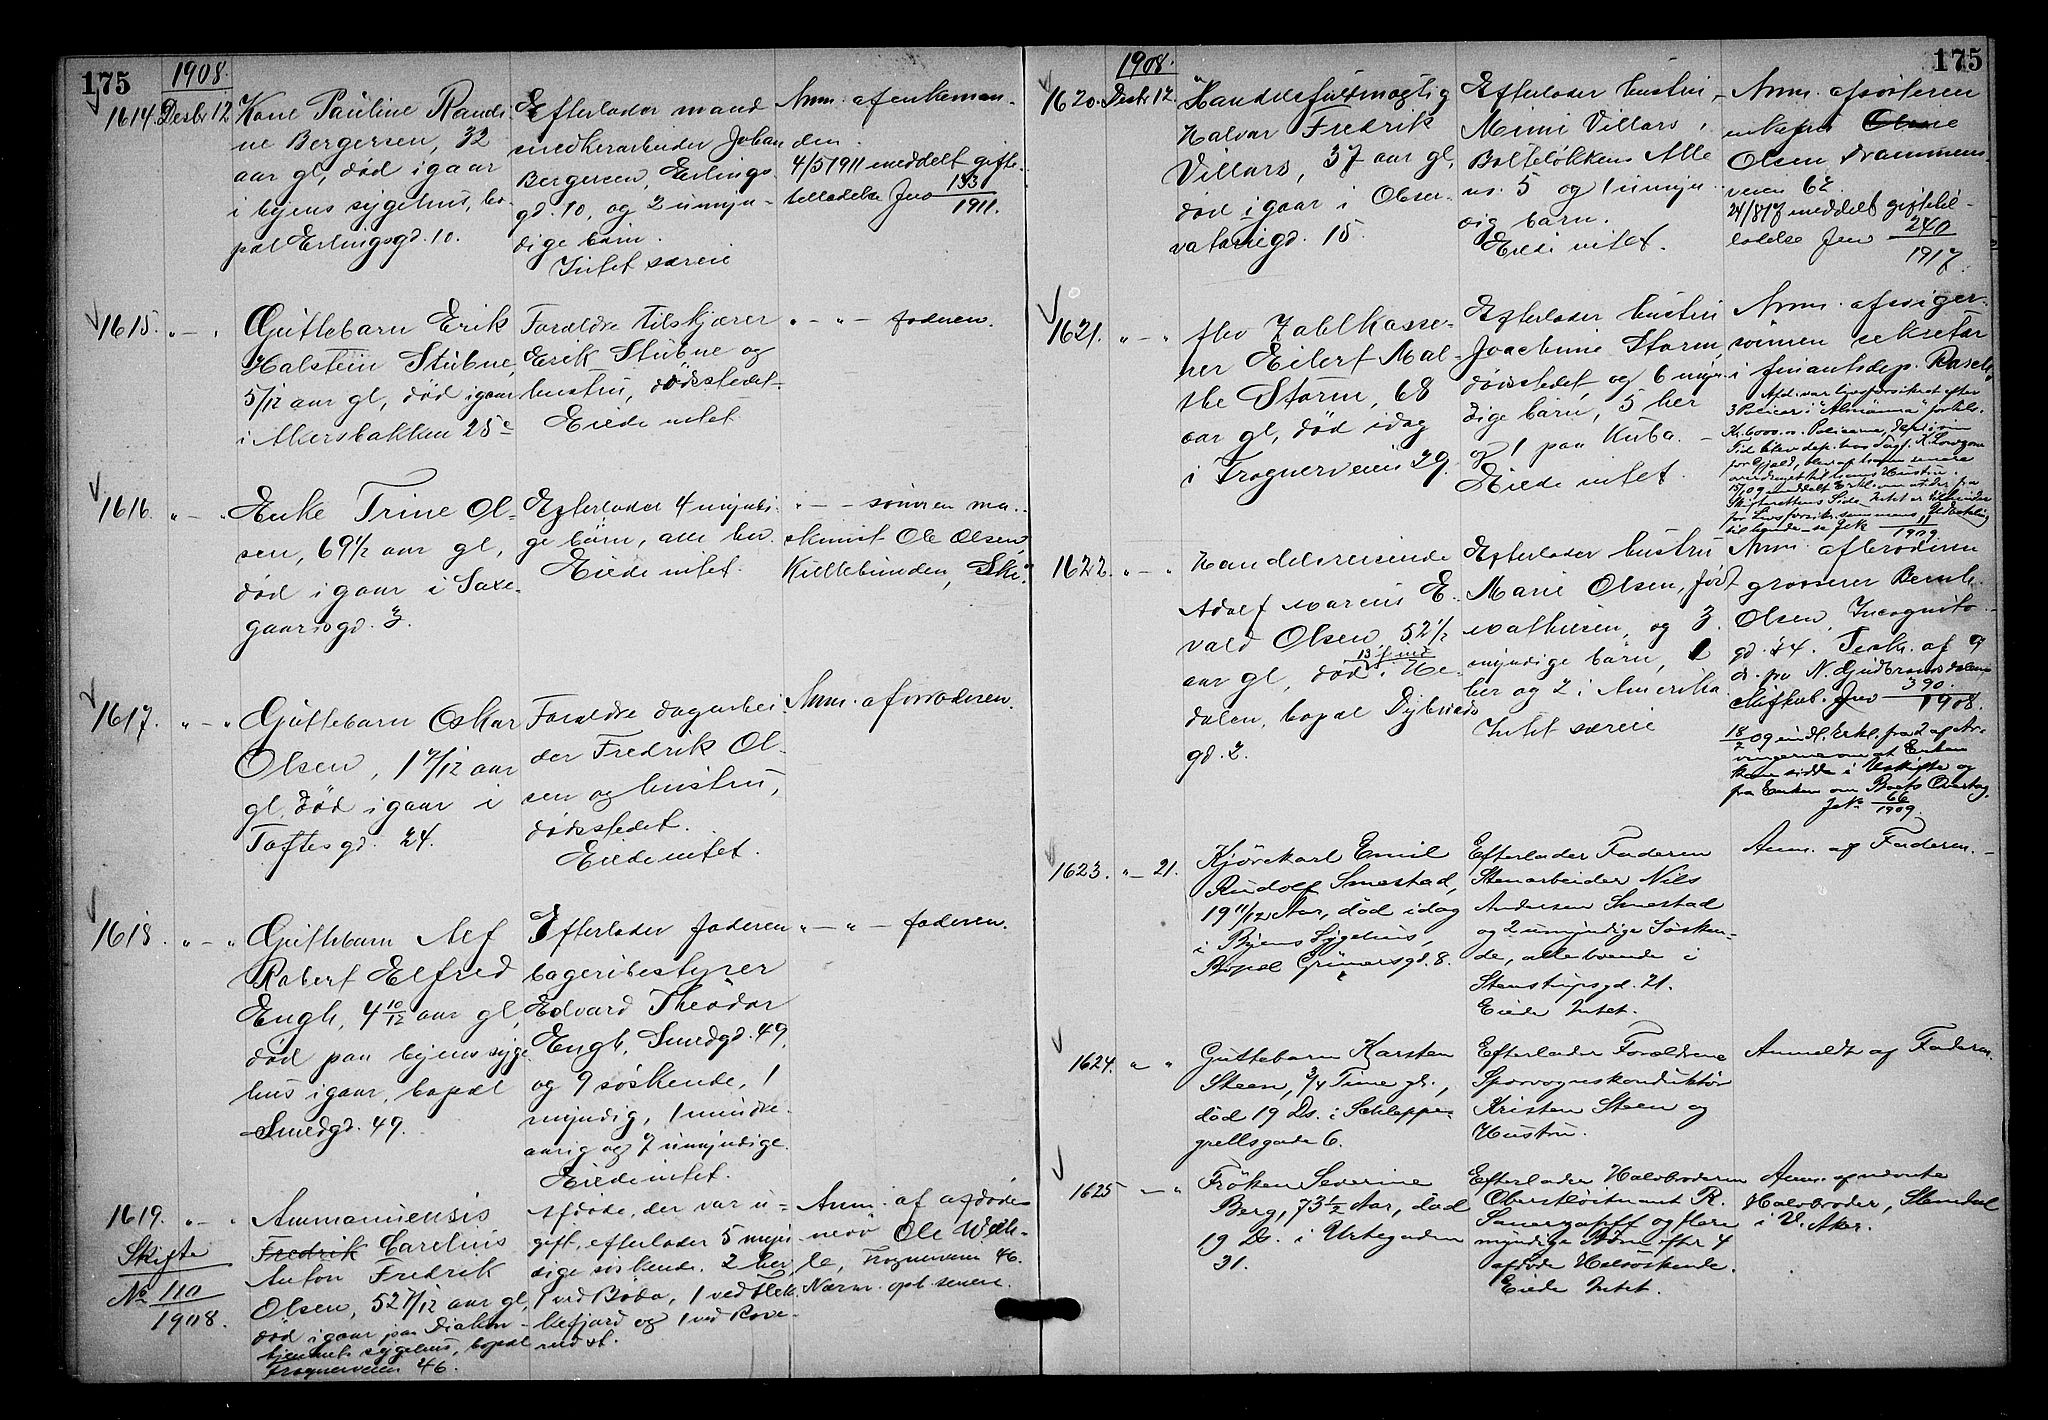 175
1908.
1614. Desbr 12
Kone Pauline Randi-
ne Bergersen, 32
aar gl, død igaar
i byens sygehus, bo-
pæl Erlingsgd. 10.
Efterlader mand
snedkerarbeider Johan
Bergersen, Erlings-
gd. 10, og 2 umyn-
dige børn.
Intet særeie
Anm. af enkeman-
den.
4/5 1911 meddelt gifte-
tilladelse Jno 153
1911.
1615. " — "
Guttebarn Erik
Halstein Stubne,
5/12 aar gl, død igaar
i Akersbakken 25 c
Forældre tilskjærer
Erik Stubne og
hustru, dødsstedet
Eiede intet
" — " — faderen.
1616. " — "
Enke Trine Ol-
sen, 69 1/2 aar gl,
død igaar i Saxe-
gaardsgd. 3.
Efterlader 4 myndi-
ge børn, alle her.
Eiede intet.
" — — sønnen ma-
skinist Ole Olsen,
Kullebunden, Ski.
1617. " — "
Guttebarn Oskar
Olsen, 1 7/12 aar
gl, død igaar i
Toftes gd. 24.
Forældre dagarbei-
der Fredrik Ol-
sen og hustru,
dødsstedet.
Eiede intet.
Anm. af moderen.
1618. " — "
Guttebarn Alf
Robert Elfred
Engh, 4 10/12 aar gl,
død paa byens syge-
hus igaar, bopæl
Smedgd. 49.
Efterlader faderen
bageribestyrer
Edvard Theodor
Engh, Smedgd. 49,
og 9 søskende, 1
myndig, 1 mindre-
aarig og 7 umyndige.
Eiede intet.
" — " — faderen.
1619. " — "
Skifte
No 110
1908.
Ammanuensis
Fredrik Carelius
Anton Fredrik
Olsen, 52 7/12 aar gl,
død igaar paa Diakon-
hjemmets sygehus, bopæl
Frognerveien 46.
Afdøde, der var u-
gift, efterlader 5 myn-
dige søskende. 2 her
1 ved Bodø, 1 ved Flek-
kefjord og 1 ved Rose-
Anm. af afdødes
nevø Ole
Frognerveien 46.
Nærm. opl. senere.
175
1908.
1620. Desbr 12
Handelsfuldmægtig
Halvar Fredrik
Villars, 37 aar gl,
død igaar i Obser-
vatoriegd. 15.
Efterlader hustru
Mimi Villars,
Bolteløkkens Alle
no. 5 og 1 umyn-
dig barn.
Eiede intet.
Anm. af søsteren
enkefru Olsne
Olsen Drammens-
veien 62.
24/8 17 meddelt giftetil-
ladelse Jno 240
1917.
1621. " — "
fhv Zahlkasse-
rer Eilert Mal-
the Storm, 68
aar gl, død idag
i Frognerveien 29.
Efterlader hustru
Joachimie Storm,
dødsstedet, og 6 myn-
dige børn, 5 her
og 1 paa Kuba. —
Eiede intet.
Anm. af sviger-
sønnen sekretær
i finantsdep. Rasch.
Afd. var livsforsikret efter
3 Policer i "Almänna" fortils.
Kr. 6000.00. Policerne, dep. i sin
Tid blev dep. hos Sagf. K.
for Gjæld, blev af ham senere
overdraget til hans Hustru.
til hende se JNo 11
1909.
1622. " — "
Handelsreisende
Adolf Marius E-
vald Olsen, 52 1/2
aar gl, død 13 f. md i He-
dalen, bopæl Dybvads
gd. 2.
Efterlader hustru
Marie Olsen, født
Mathiesen, og 3
myndige børn, 1
her og 2 i Amerika.
Intet særeie
Anm. af broderen
grosserer Bernh.
Olsen, Incognito-
gd. 24. Teskr. af 9
ds. fra N. Gudbrandsdalens
skifteb. Jno 390.
1908.
18/2 09 indl. Erkl. fra 2 af Ar-
vingerne om at Enken
kan sidde i Uskifte og
fra Enken om Boets Overtag.
JNo 66
1909.
1623. " — 21.
Kjørekarl Emil
Rudolf Smestad,
19 11/12 Aar, død idag
i Byens Sygehus,
Bopæl Grünersgd. 8.
Efterlader Faderen
Stenarbeider Nils
Andersen Smestad
og 2 umyndige Søsken-
de, alle boende i
Stenstrupsgd. 21.
Eiede Intet.
Anm. af Faderen. —
1624. " "
Guttebarn Karsten
Steen, 3/4 Time gl.,
død 19 Ds. i Schleppe-
grellsgade 6.
Efterlader Forældrene
Sporvognskonduktør
Kristen Steen og
Hustru.
Anmeldt af Faderen.
1625 " — "
Frøken Severine
Berg, 73 1/2 Aar, død
19 Ds. i Urtegaden
31.
Efterlader Halvbroderen
Oberstløitnant R.
Sauerzapff og flere
myndige Børn efter 4
afdøde Halvsøskende.
Eiede Intet.
Anm. af nævnte
Halvbroder, Stendal
i V. Aker.